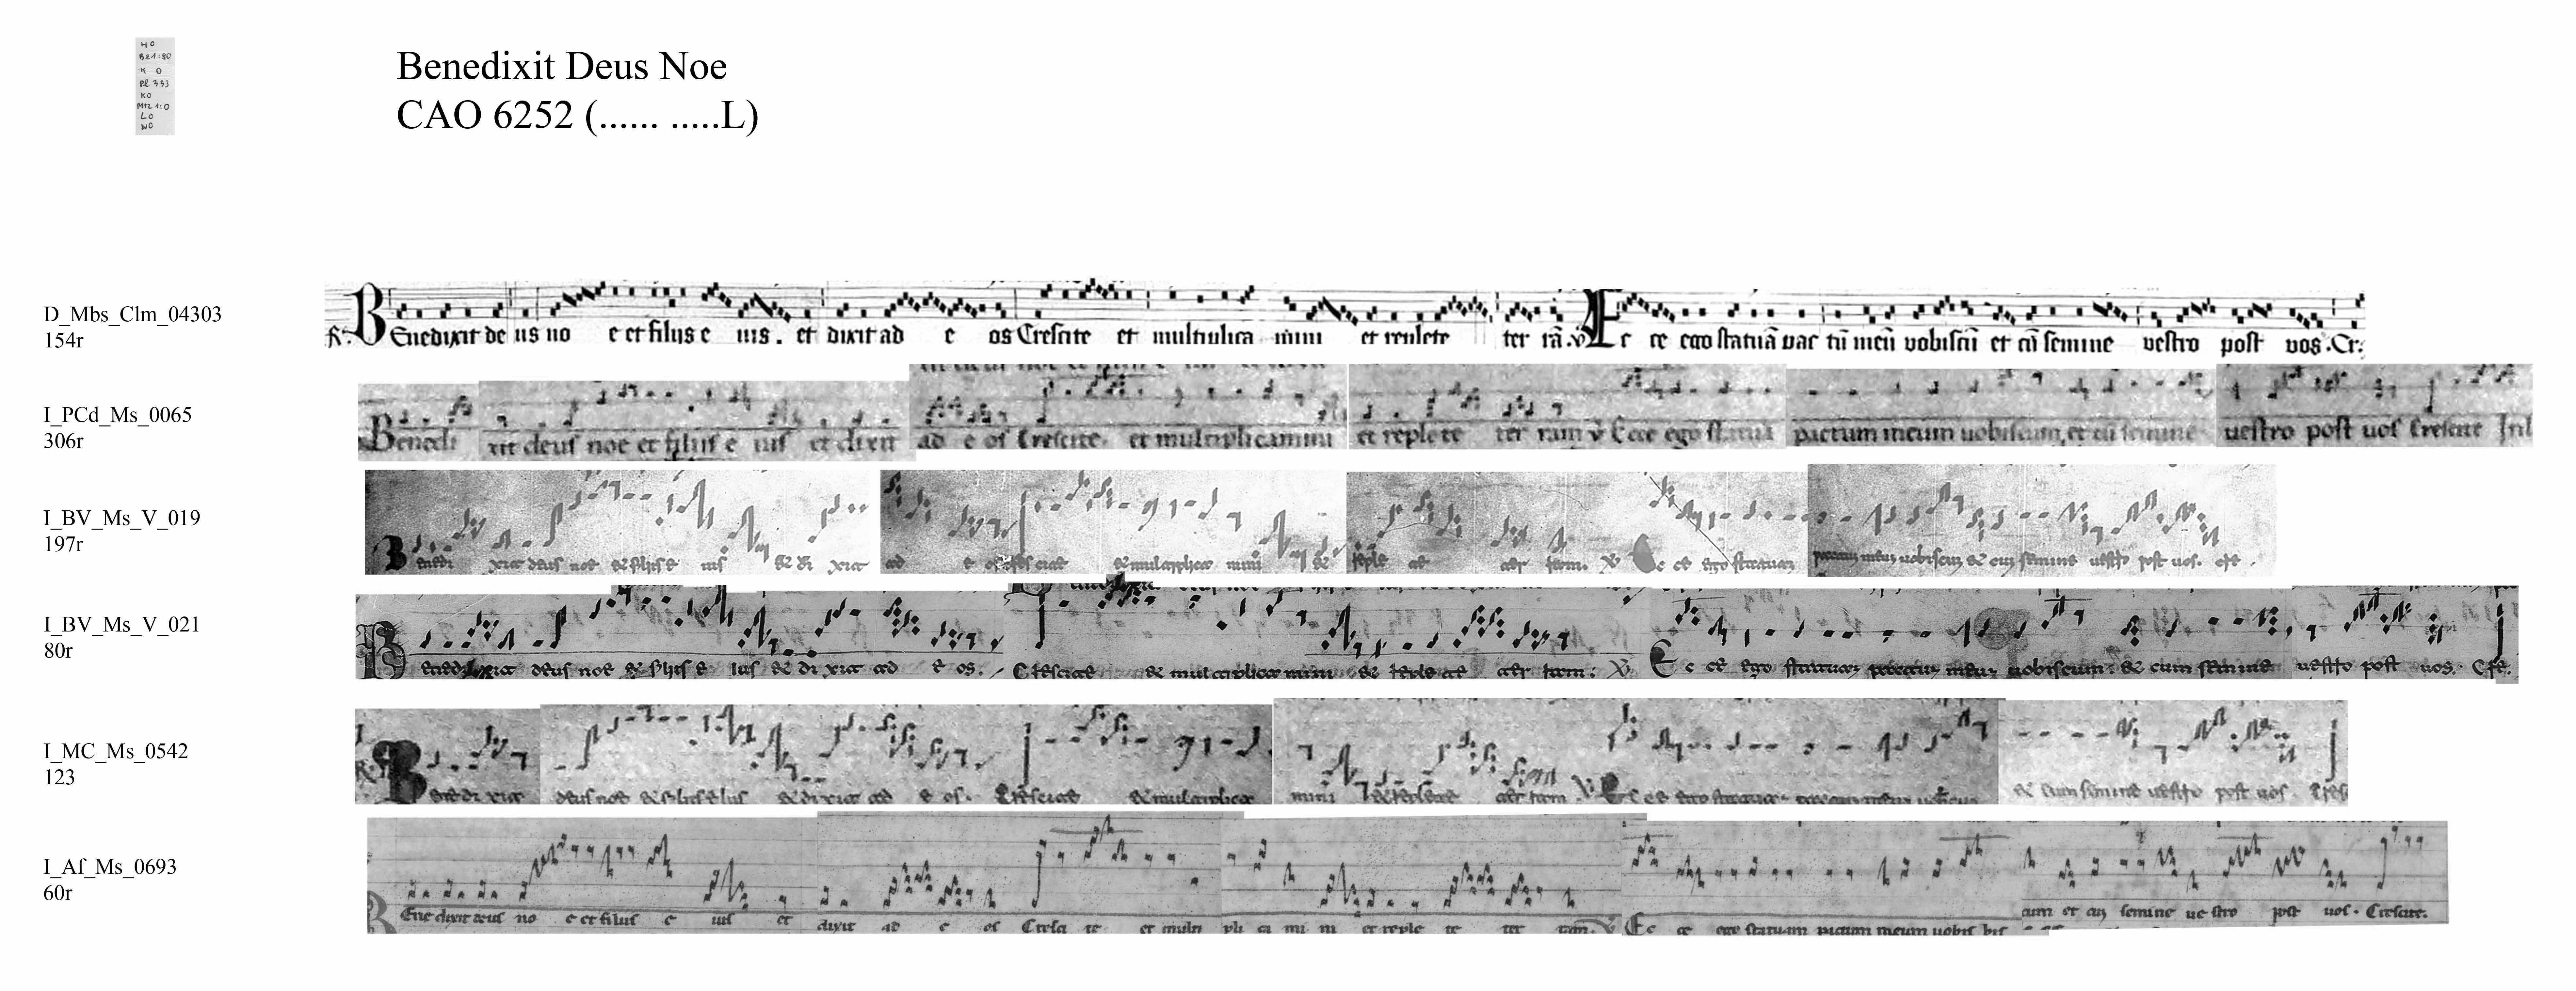 H O
Bz 1:80
K O
Pl 333
K O
Mtz 1:0
L O
W O
Benedixit Deus Noe
CAO 6252 (...... .....L)
D_Mbs_Clm_04303
154r
R. BEnedixit de us no e et filiis e ius. et dixit ad e os Crescite et multiplica mini et replete ter rā. v Ec ce ego statuā pac tū meū vobiscū et cū semine vestro post vos. Cr.
I_PCd_Ms_0065
306r
Benedi xit deus noe et filiis e ius et dixit ad e os Crescite et multiplicamini et reple te ter ram v Ecce ego statua pactum meum uobiscum, et cū semine uestro post uos Crescite
I_BV_Ms_V_019
197r
Benedi xit deus noe et filiis e ius et di xit ad e os cres cite et multiplica mini et reple te ter ram. V Ec ce ego statuam pactum meum uobiscum et cum semine uestro post uos. cre
I_BV_Ms_V_021
80r
Benedixit deus noe et filiis e ius et di xit ad e os. Crescite et multiplica mini et reple te ter ram: V Ec ce ego statuam pactum meum uobiscum. et cum semine uestro post uos. Cre
I_MC_Ms_0542
123
Benedi xit deus noe et filiis eius et di xit ad e os. Crescite et multiplica mini et reple te ter ram. V Ec ce ego statuam pactum meum et cum semine uestro post uos. Cres
I_Af_Ms_0693
60r
BEne dixit deus no e et filiis e ius et dixit ad e os Cresci te et multi pli ca mi ni et reple te ter ram. V Ec ce ego statuam pactum meum uobis cum et cum semine ue stro post uos. Crescite.